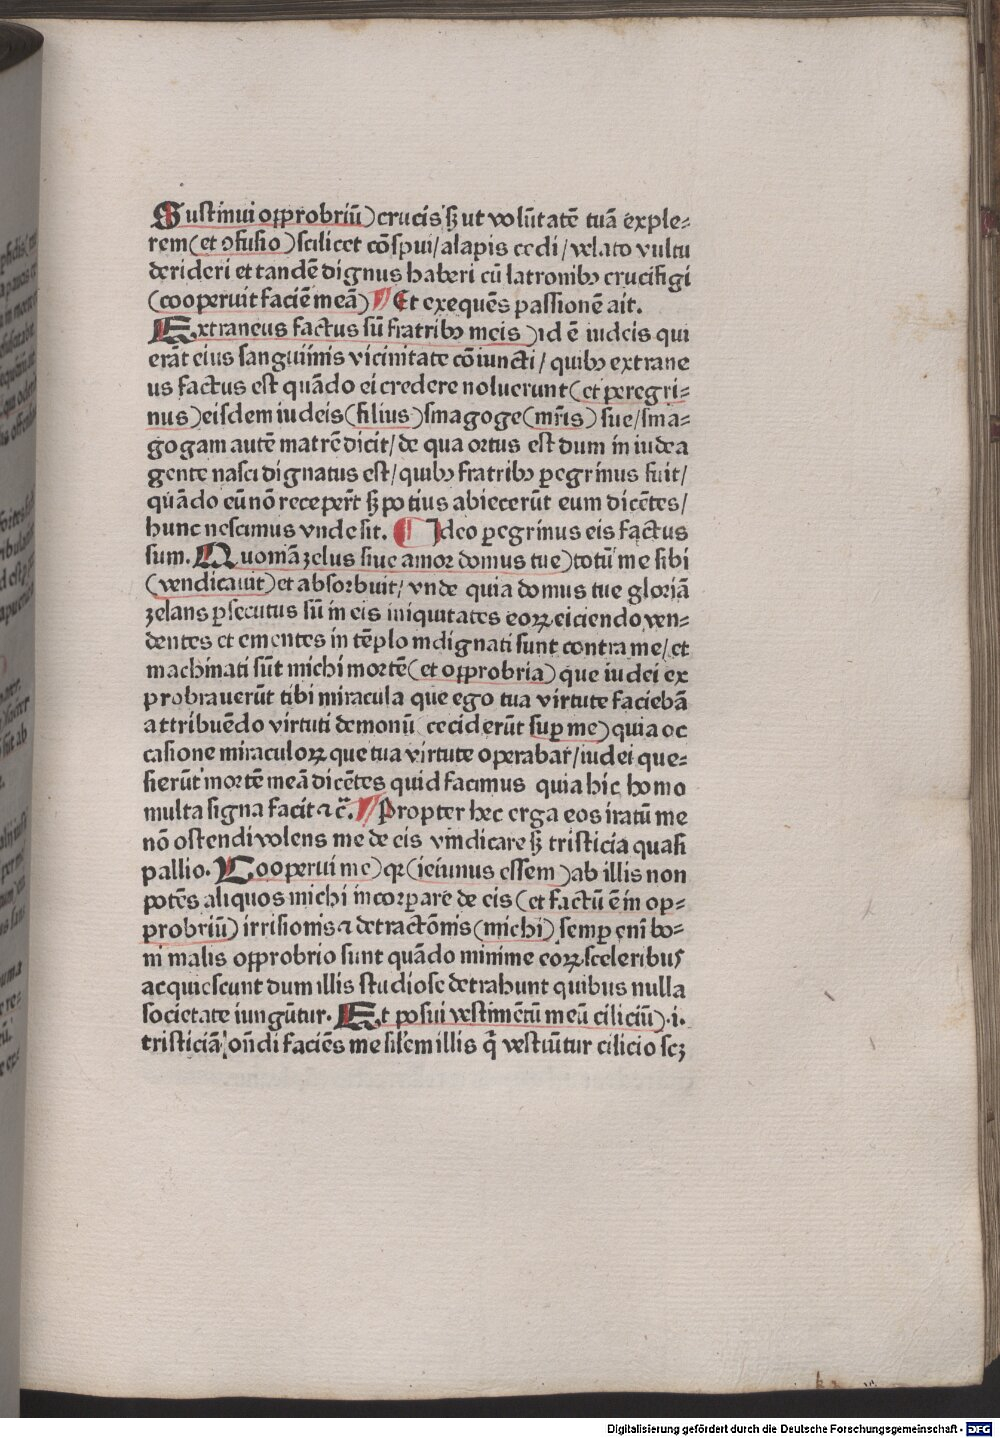 Sustinui opprobriū) crucis sꝫ ut volūtatē tuā exple⸗
rem (et ↄfusio) scilicet cōspui/ alapis cedi/ velato vultu
derideri et tandē dignus haberi cū latronibꝯ crucifigi
(cooperuit faciē meā) Et exequēs passionē ait.
Extraneus factus sū fratribꝯ meis) id ē iudeis qui
erāt eius sanguinis vicinitate cōiuncti/ quibꝯ extrane
us factus est quādo ei credere noluerunt (et peregri⸗
nus) eisdem iudeis (filius) sinagoge (mr̄is) sue/ sina⸗
gogam autē matrē dicit/ de qua ortus est dum in iudea
gente nasci dignatus est/ quibꝯ fratribꝯ ꝑegrinus fuit/
quādo eū nō receper̄t sꝫ potius abiecerūt eum dicētes/
hunc nescimus vnde sit. Ideo ꝑegrinus eis factus
sum. Quoniā zelus siue amor domus tue) totū me sibi
(vendicauit) et absorbuit/ vnde quia domus tue gloriā
zelans ꝑsecutus sū in eis iniquitates eoꝝ eiciendo ven⸗
dentes et ementes in tēplo indignati sunt contra me/ et
machinati sūt michi mortē (et opprobria) que iudei ex
probrauerūt tibi miracula que ego tua virtute faciebā
attribuēdo virtuti demonū ceciderūt suꝑ me) quia oc
casione miraculoꝝ que tua virtute operabar̄/ iudei que⸗
sierūt mortē meā dicētes quid facimus quia hic homo
multa signa facit ⁊ c̄. Propter hec erga eos iratū me
nō ostendi volens me de eis vindicare sꝫ tristicia quasi
pallio. Cooperui me) qꝛ (ieiunus essem) ab illis non
potēs aliquos michi incorꝑare de eis (et factū ē in op⸗
probriū) irrisionis ⁊ detractōnis (michi) semꝑ eni bo⸗
ni malis opprobrio sunt quādo minime eoꝝ sceleribus
acquiescunt dum illis studiose detrahunt quibus nulla
societate iungūtur. Et posui vestimētū meū ciliciū) .i.
tristiciā on̄di faciēs me sil̄em illis q̄ vestiūtur cilicio scꝫ
Digitalisierung gefördert durch die Deutsche Forschungsgemeinschaft - DFG